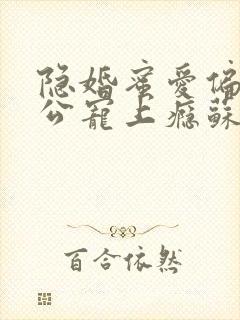 隐婚蜜爱偏
公宠上瘾苏
百合依然